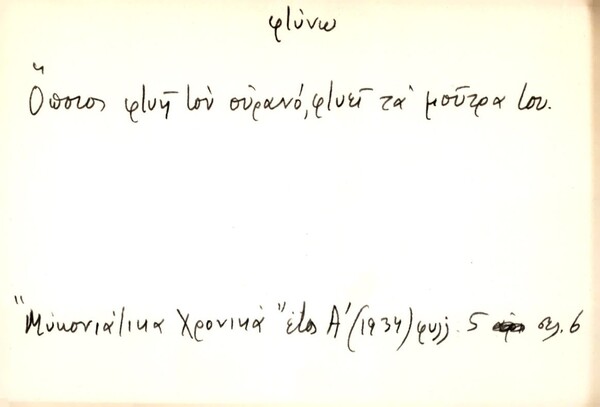 φτύνω
Ὅποιος φτυῇ τὸν οὐρανό, φτυεῖ τὰ μοῦτρα του.
"Μυκονιάτικα Χρονικά" ἔτος Α' (1934) φυλλ. 5 σελ. 6